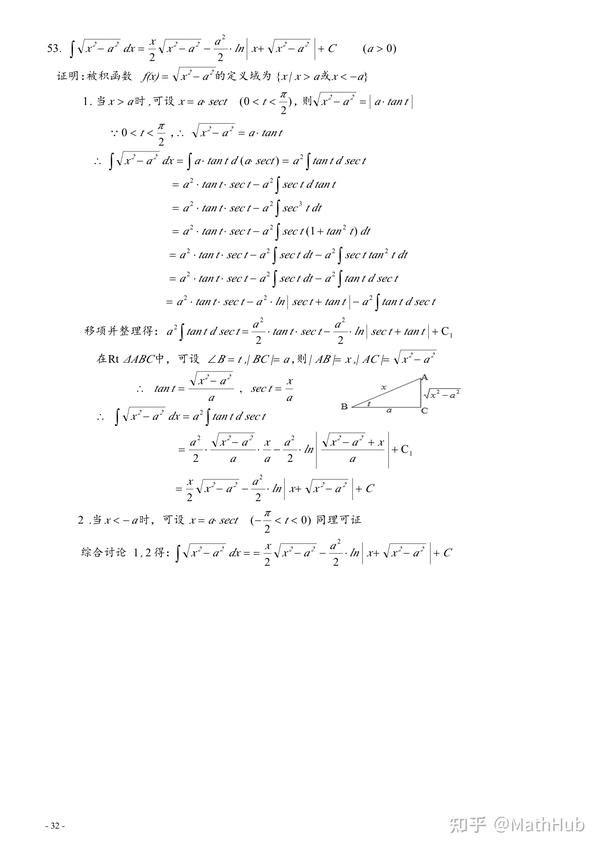 53. ∫√(x²−a²) dx = x/2 √(x²−a²) − a²/2 · ln| x+√(x²−a²) | + C (a > 0)
证明:被积函数 f(x) = √(x²−a²)的定义域为 {x | x > a或x < −a}
1.当 x > a时 ,可设 x = a· sect (0 < t < π/2), 则√(x²−a²) = | a·tan t |
∵ 0 < t < π/2 ,∴ √(x²−a²) = a·tan t
∴ ∫√(x²−a²) dx = ∫a·tan t d (a·sect) = a²∫tan t d sec t
= a²·tan t·sec t − a²∫sec t d tan t
= a²·tan t·sec t − a²∫sec³ t dt
= a²·tan t·sec t − a²∫sec t (1+tan² t) dt
= a²·tan t·sec t − a²∫sec t dt − a²∫sec t tan² t dt
= a²·tan t·sec t − a²∫sec t dt − a²∫tan t d sec t
= a²·tan t·sec t − a²·ln| sec t + tan t | − a²∫tan t d sec t
移项并整理得: a²∫tan t d sec t = a²/2 · tan t·sec t − a²/2 · ln| sec t + tan t | + C₁
在Rt ΔABC中，可设 ∠B = t ,| BC |= a ,则| AB |= x ,| AC |= √(x²−a²)
∴ tan t = √(x²−a²)/a , sec t = x/a
A
x
√(x²−a²)
B t a C
∴ ∫√(x²−a²) dx = a²∫tan t d sec t
= a²/2 · √(x²−a²)/a · x/a − a²/2 · ln| (√(x²−a²) + x)/a | + C₁
= x/2 √(x²−a²) − a²/2 · ln| x+√(x²−a²) | + C
2 .当 x < −a时，可设 x = a·sect (−π/2 < t < 0) 同理可证
综合讨论 1,2 得: ∫√(x²−a²) dx = = x/2 √(x²−a²) − a²/2 · ln| x+√(x²−a²) | + C
- 32 -
知乎 @MathHub